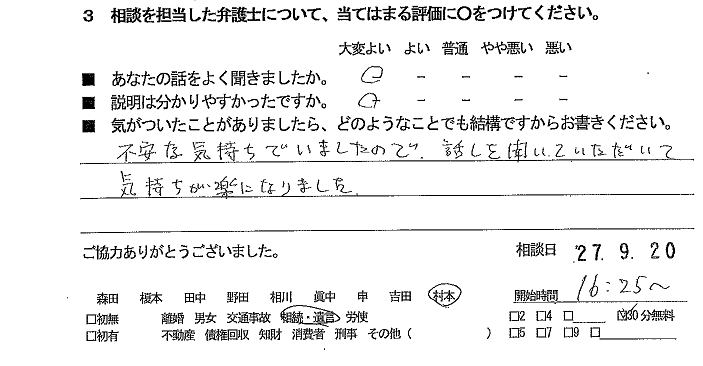 3 相談を担当した弁護士について、当てはまる評価に〇をつけてください。
大変よい よい 普通 やや悪い 悪い
■ あなたの話をよく聞きましたか。 〇 － － － －
■ 説明は分かりやすかったですか。 〇 － － － －
■ 気がついたことがありましたら、どのようなことでも結構ですからお書きください。
不安な気持ちでいましたので、話しを聞いていただいて
気持ちが楽になりました。
ご協力ありがとうございました。 相談日 27. 9. 20
森田 榎本 田中 野田 相川 眞中 申 吉田 村本 開始時間 16:25〜
□初無 離婚 男女 交通事故 相続・遺言 労使 □2 □4 □ ☑30分無料
□初有 不動産 債権回収 知財 消費者 刑事 その他( ) □5 □7 □9 □